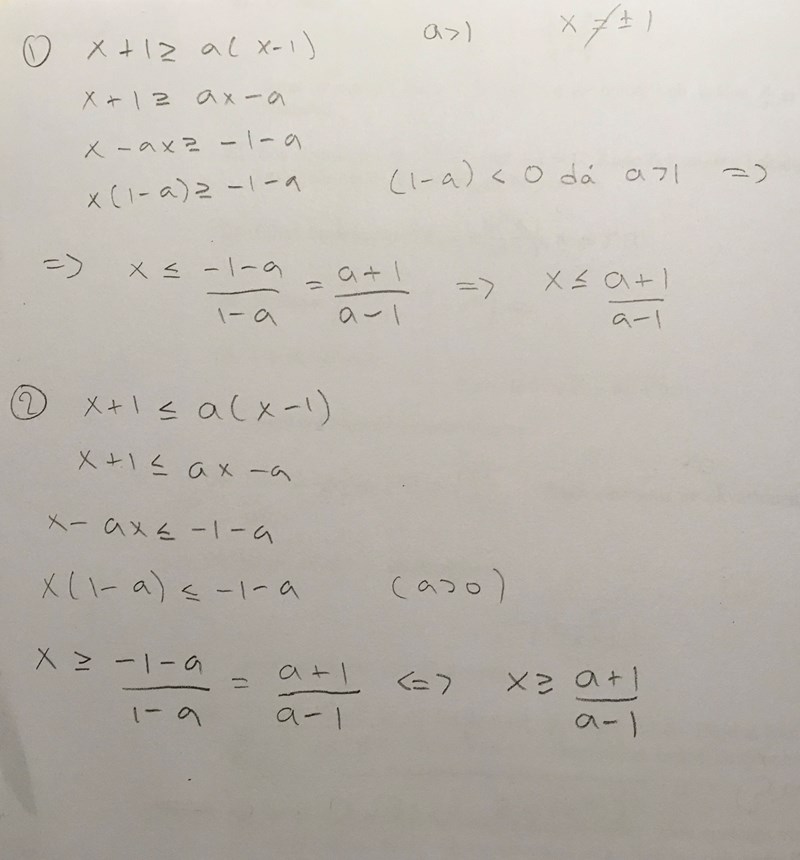 ① x + 1 ≥ a(x-1) a>1 x ≠ ± 1
x + 1 ≥ ax - a
x - ax ≥ -1 - a
x(1-a) ≥ -1 - a (1-a) < 0 då a>1 =>
=> x ≤ (-1-a)/(1-a) = (a+1)/(a-1) => x ≤ (a+1)/(a-1)
② x+1 ≤ a(x-1)
x+1 ≤ ax - a
x - ax ≤ -1 - a
x(1-a) ≤ -1 - a (a>0)
x ≥ (-1-a)/(1-a) = (a+1)/(a-1) <=> x ≥ (a+1)/(a-1)